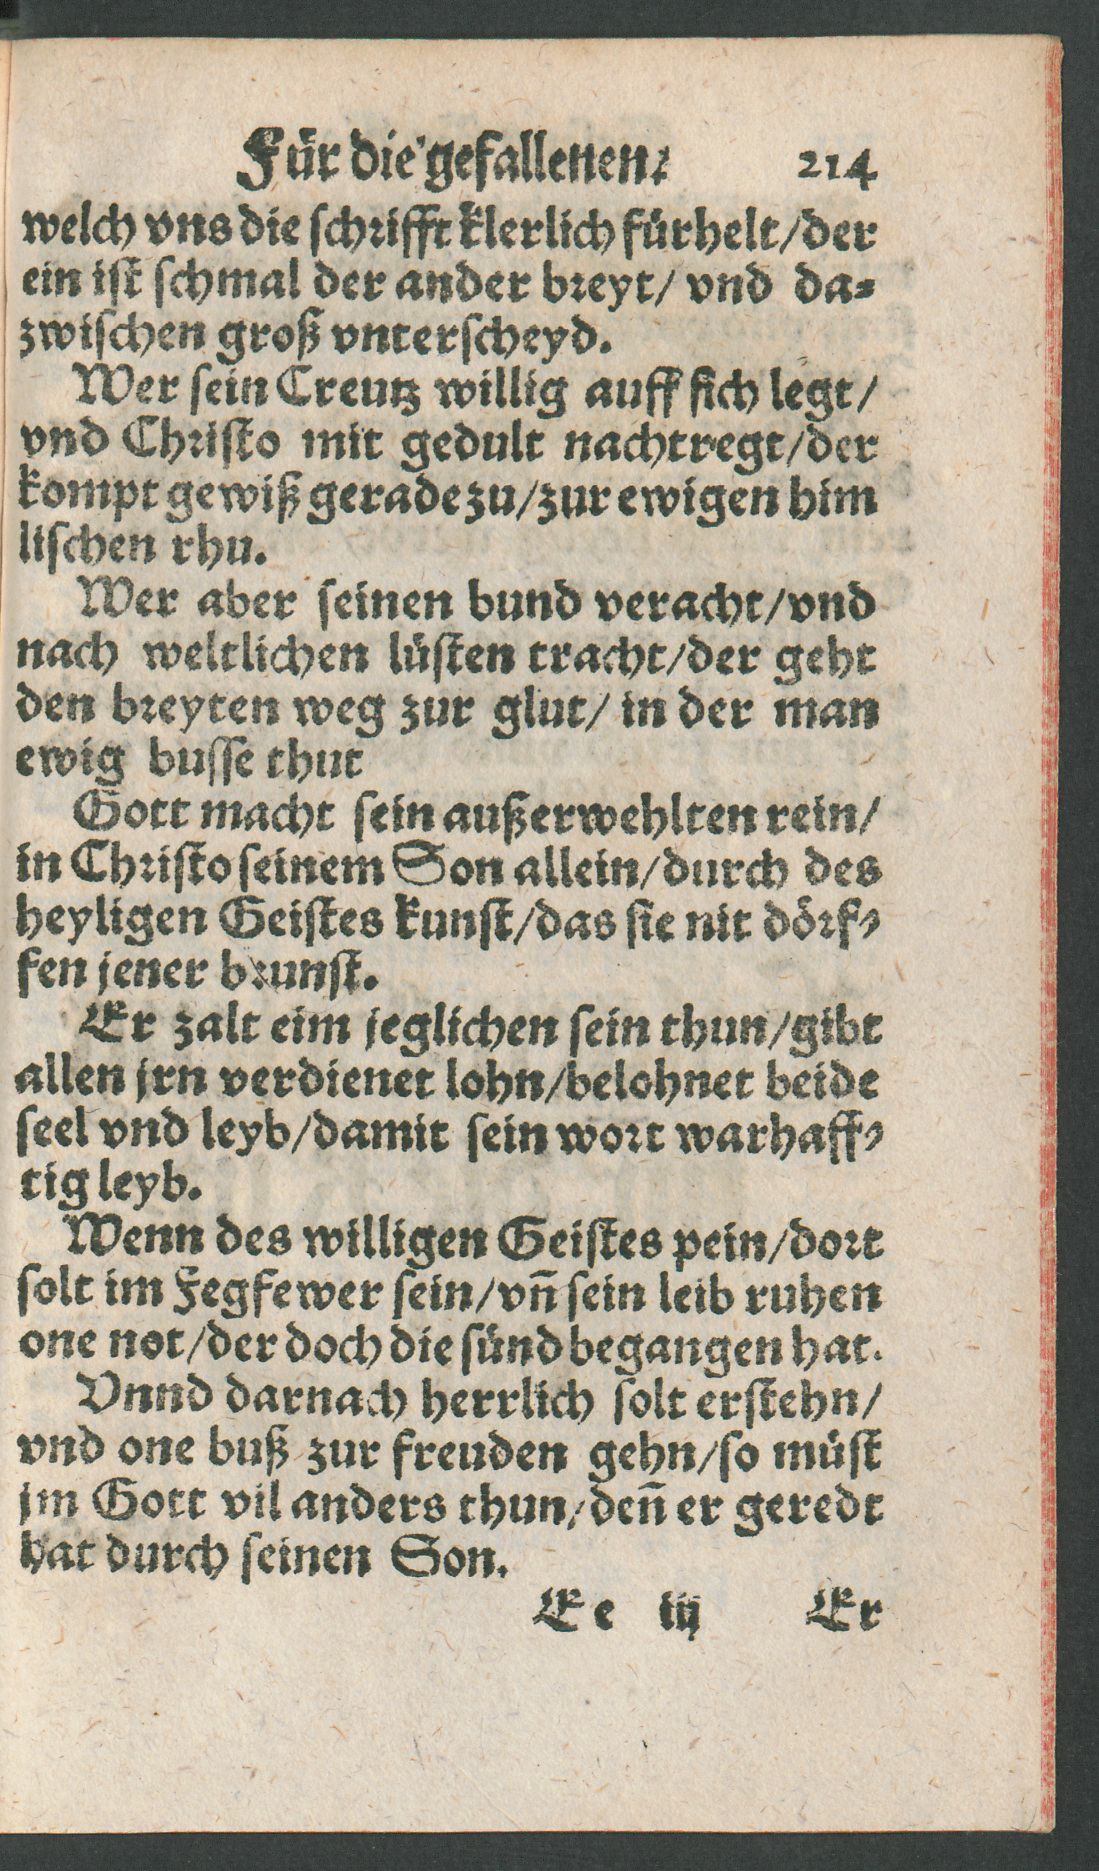 Für die gefallenen. 214
welch vns die schrifft klerlich fürhelt/der
ein ist schmal der ander breyt/ vnd da⸗
zwischen groß vnterscheyd.
Wer sein Creutz willig auff sich legt/
vnd Christo mit gedult nachtregt/der
kompt gewiß gerade zu/zur ewigen him
lischen rhu.
Wer aber seinen bund veracht/vnd
nach weltlichen lüsten tracht/der geht
den breyten weg zur glut/ in der man
ewig busse thut
Gott macht sein außerwehlten rein/
in Christo seinem Son allein/durch des
heyligen Geistes kunst/das sie nit dörf⸗
fen jener brunst.
Er zalt eim jeglichen sein thun/gibt
allen jrn verdienet lohn/belohnet beide
seel vnd leyb/damit sein wort warhaff⸗
tig leyb.
Wenn des willigen Geistes pein/dort
solt im Fegfewer sein/vn̄ sein leib ruhen
one not/der doch die sünd begangen hat.
Vnnd darnach herrlich solt erstehn/
vnd one buß zur freuden gehn/so müst
jm Gott vil anders thun/den̄ er geredt
hat durch seinen Son.
Ee iij Er